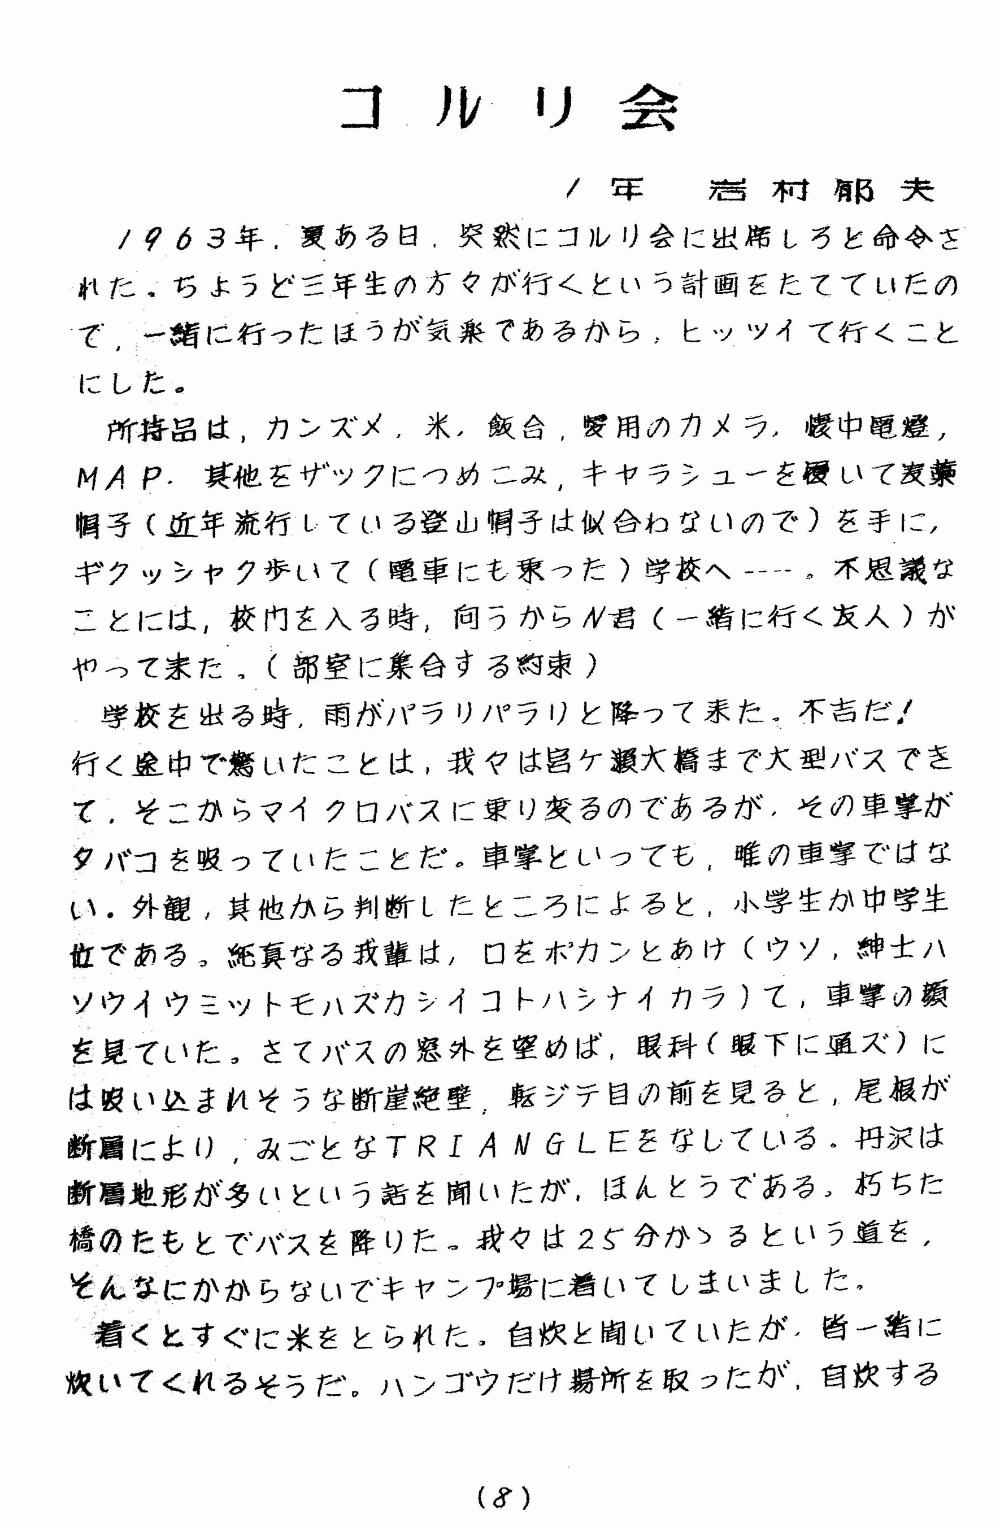 コルリ会
1年 岩村郁夫
1963年,夏ある日,突然にコルリ会に出席しろと命令さ
れた。ちょうど三年生の方々が行くという計画をたてていたの
で,一緒に行ったほうが気楽であるから,ヒッツイて行くこと
にした。
所持品は,カンズメ,米,飯合,愛用のカメラ,懐中電燈,
MAP.其他をザックにつめこみ,キャラシューを履いて麦藁
帽子(近年流行している登山帽子は似合わないので)を手に,
ギクッシャク歩いて(電車にも乗った)学校へ----。不思議な
ことには,校門を入る時,向うからN君(一緒に行く友人)が
やって来た。(部室に集合する約束)
学校を出る時,雨がパラリパラリと降って来た。不吉だ!
行く途中で驚いたことは,我々は宮ケ瀬大橋まで大型バスでき
て,そこからマイクロバスに乗り変るのであるが,その車掌が
タバコを吸っていたことだ。車掌といっても,唯の車掌ではな
い.外観,其他から判断したところによると,小学生か中学生
位である。純真なる我輩は,口をポカンとあけ(ウソ,紳士ハ
ソウイウミットモハズカシイコトハシナイカラ)て,車掌の顔
を見ていた。さてバスの窓外を望めば,眼科(眼下に通ズ)に
は吸い込まれそうな断崖絶壁,転ジテ目の前を見ると,尾根が
断層により,みごとなTRIANGLEをなしている。丹沢は
断層地形が多いという話を聞いたが,ほんとうである。朽ちた
橋のたもとでバスを降りた。我々は25分かゝるという道を,
そんなにかからないでキャンプ場に着いてしまいました。
着くとすぐに米をとられた。自炊と聞いていたが,皆一緒に
炊いてくれるそうだ。ハンゴウだけ場所を取ったが,自炊する
(8)